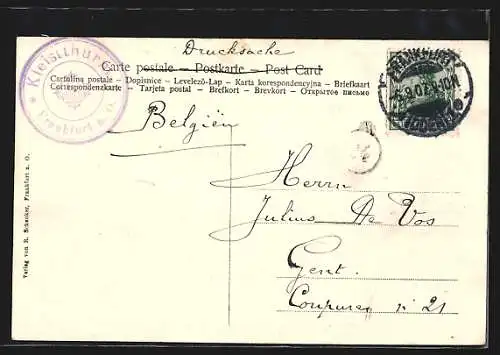 Drucksache
Carte postale — Postkarte — Post Card
Cartolina postale – Dopisnice – Levelező-Lap – Karta korespondencyjna – Briefkaart
Correspondenzkarte – Tarjeta postal – Brefkort – Brevkort – Открытое письмо
Kleistthurm
Frankfurt a. O.
FRANKFURT
9.07.9-10N.
Belgiën
Herrn
Julius De Vos
Gent.
Coupure n: 21
Verlag von R. Schenker, Frankfurt a. O.